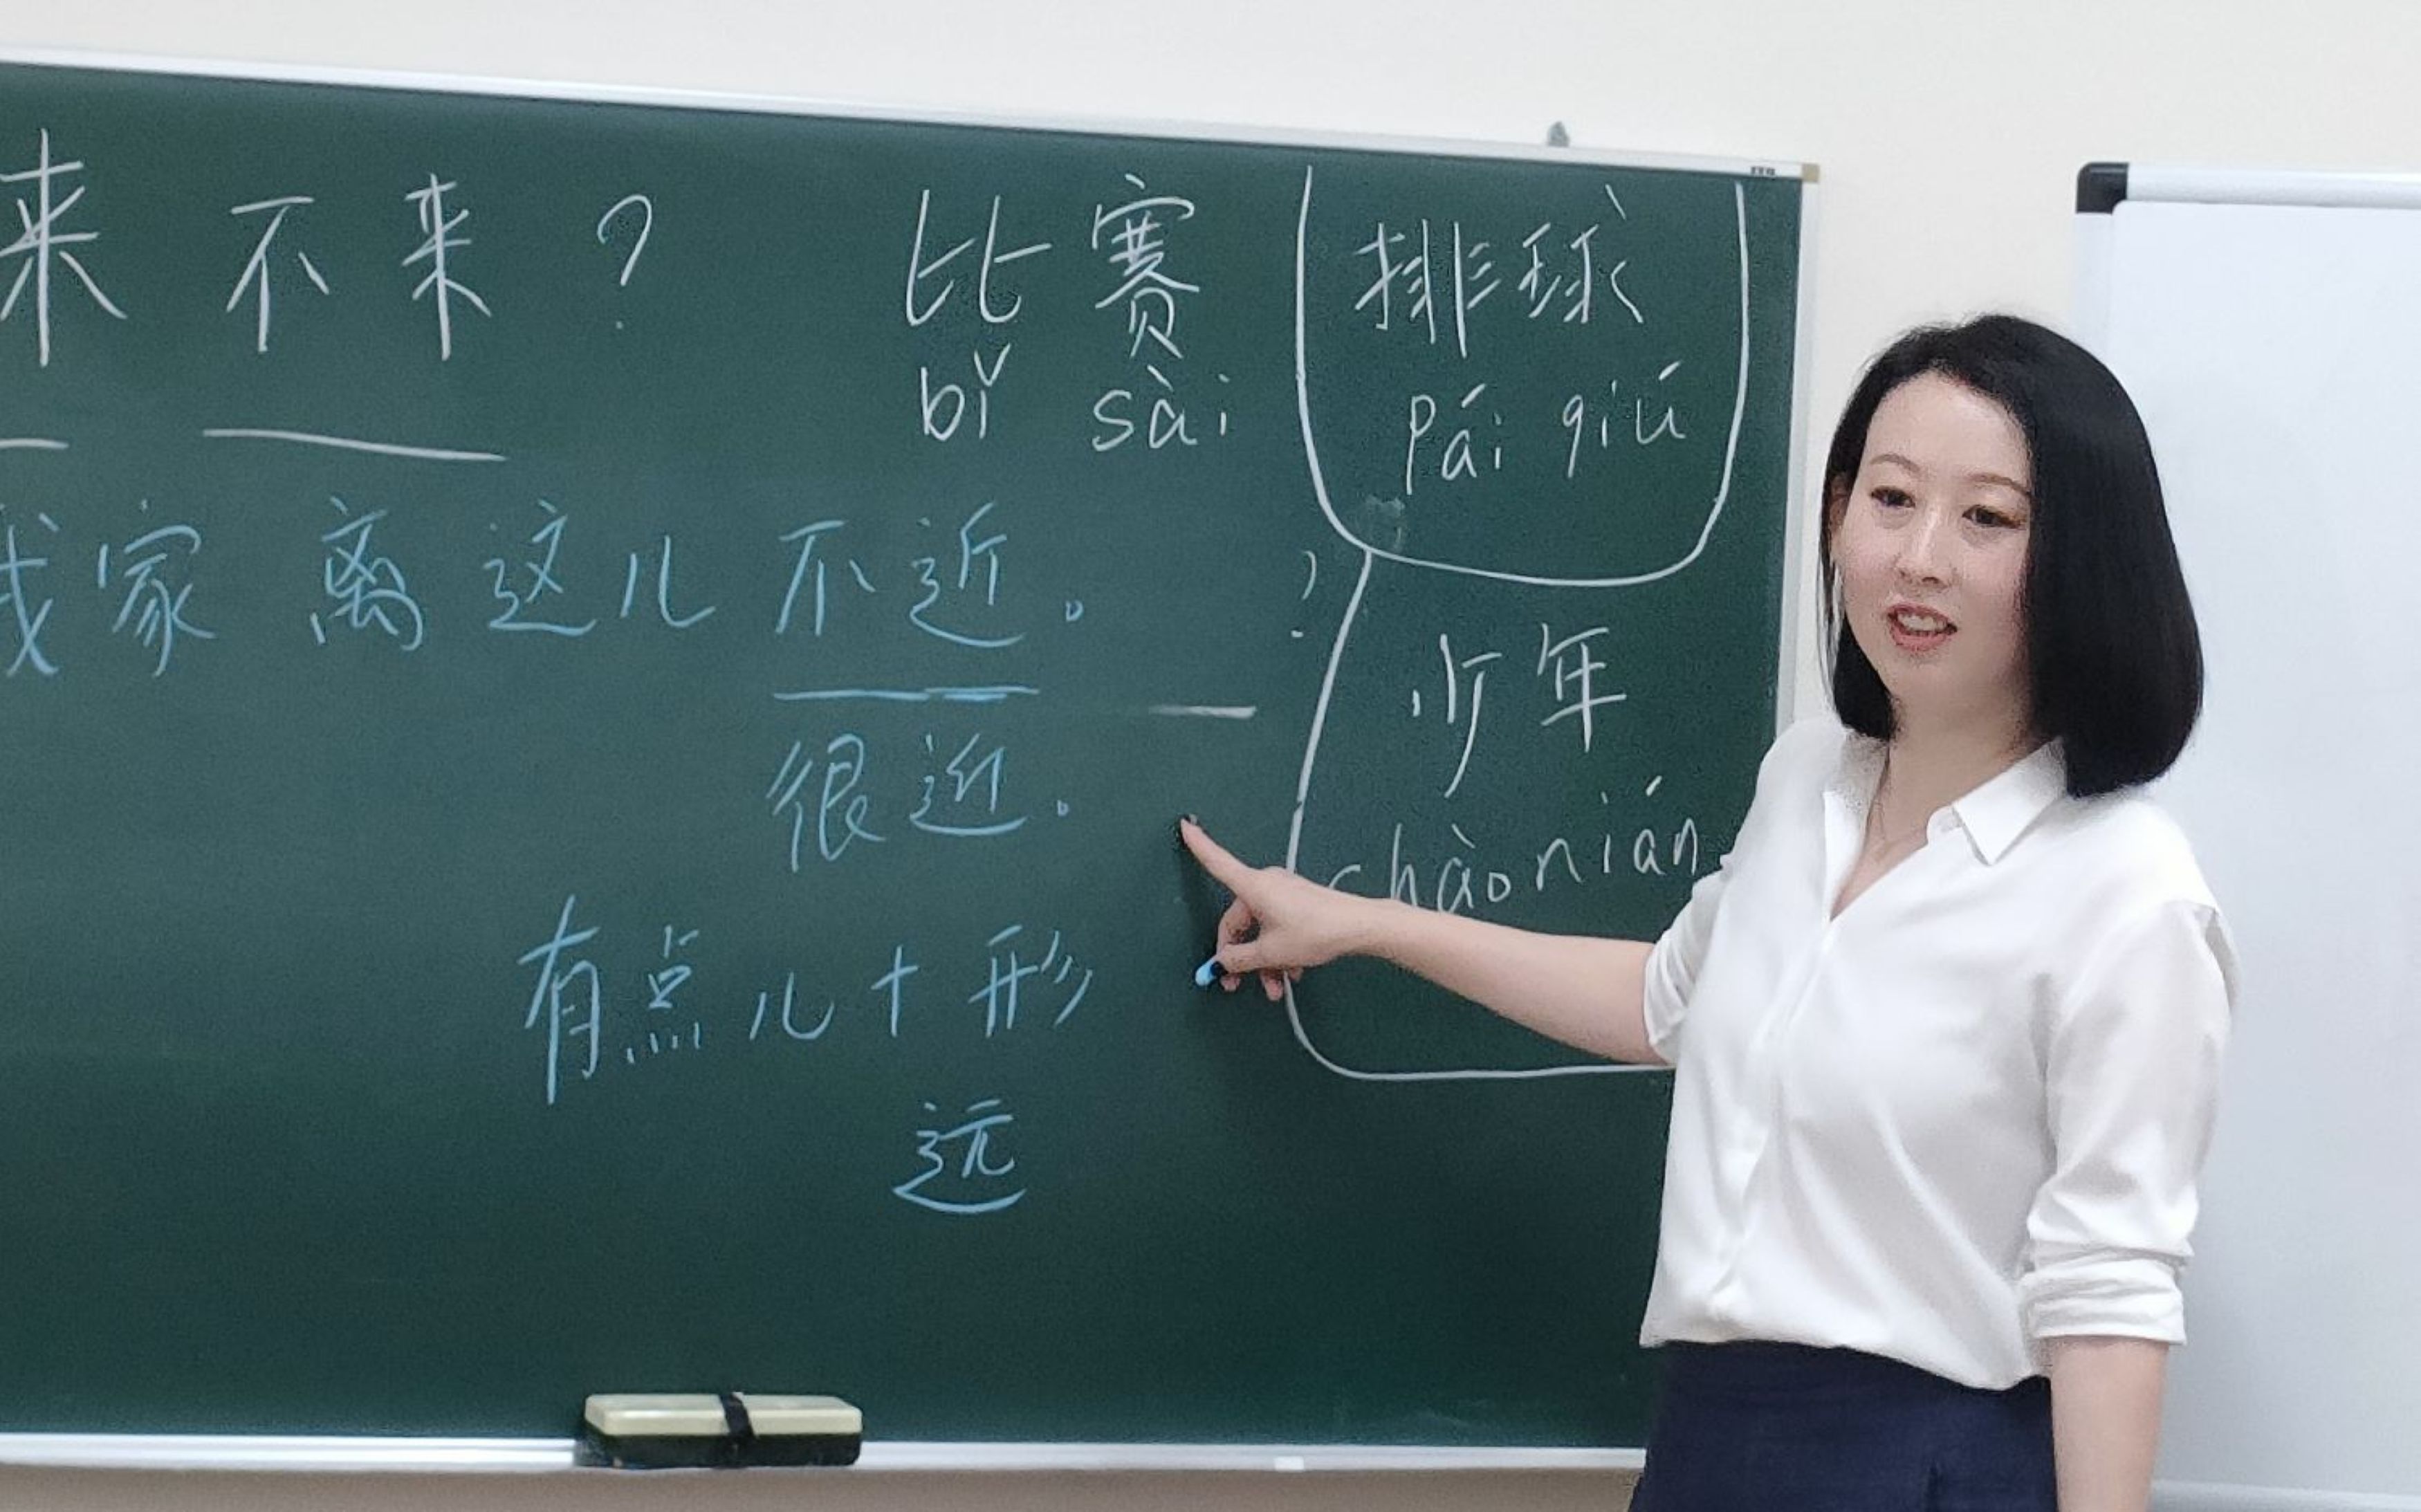 来 不 来 ?
比 赛
bǐ sài
排 球
pái qiú
我 家 离 这 儿 不 近 。
?
少 年
shàonián
很 近 。
有 点 儿 + 形
远